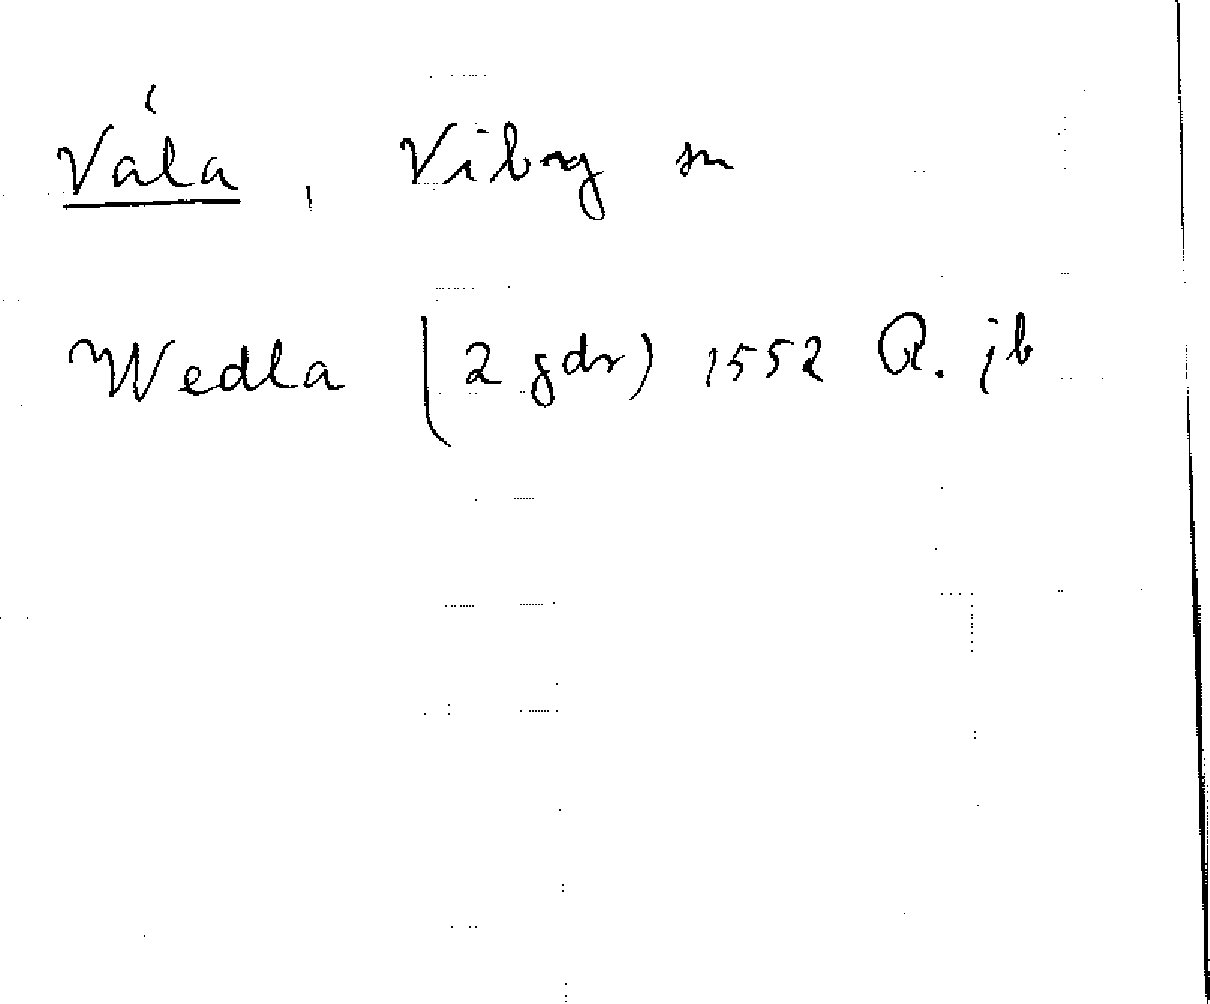 Våla, Viby sn
Wedla (2 gdr) 1552 Q. jb